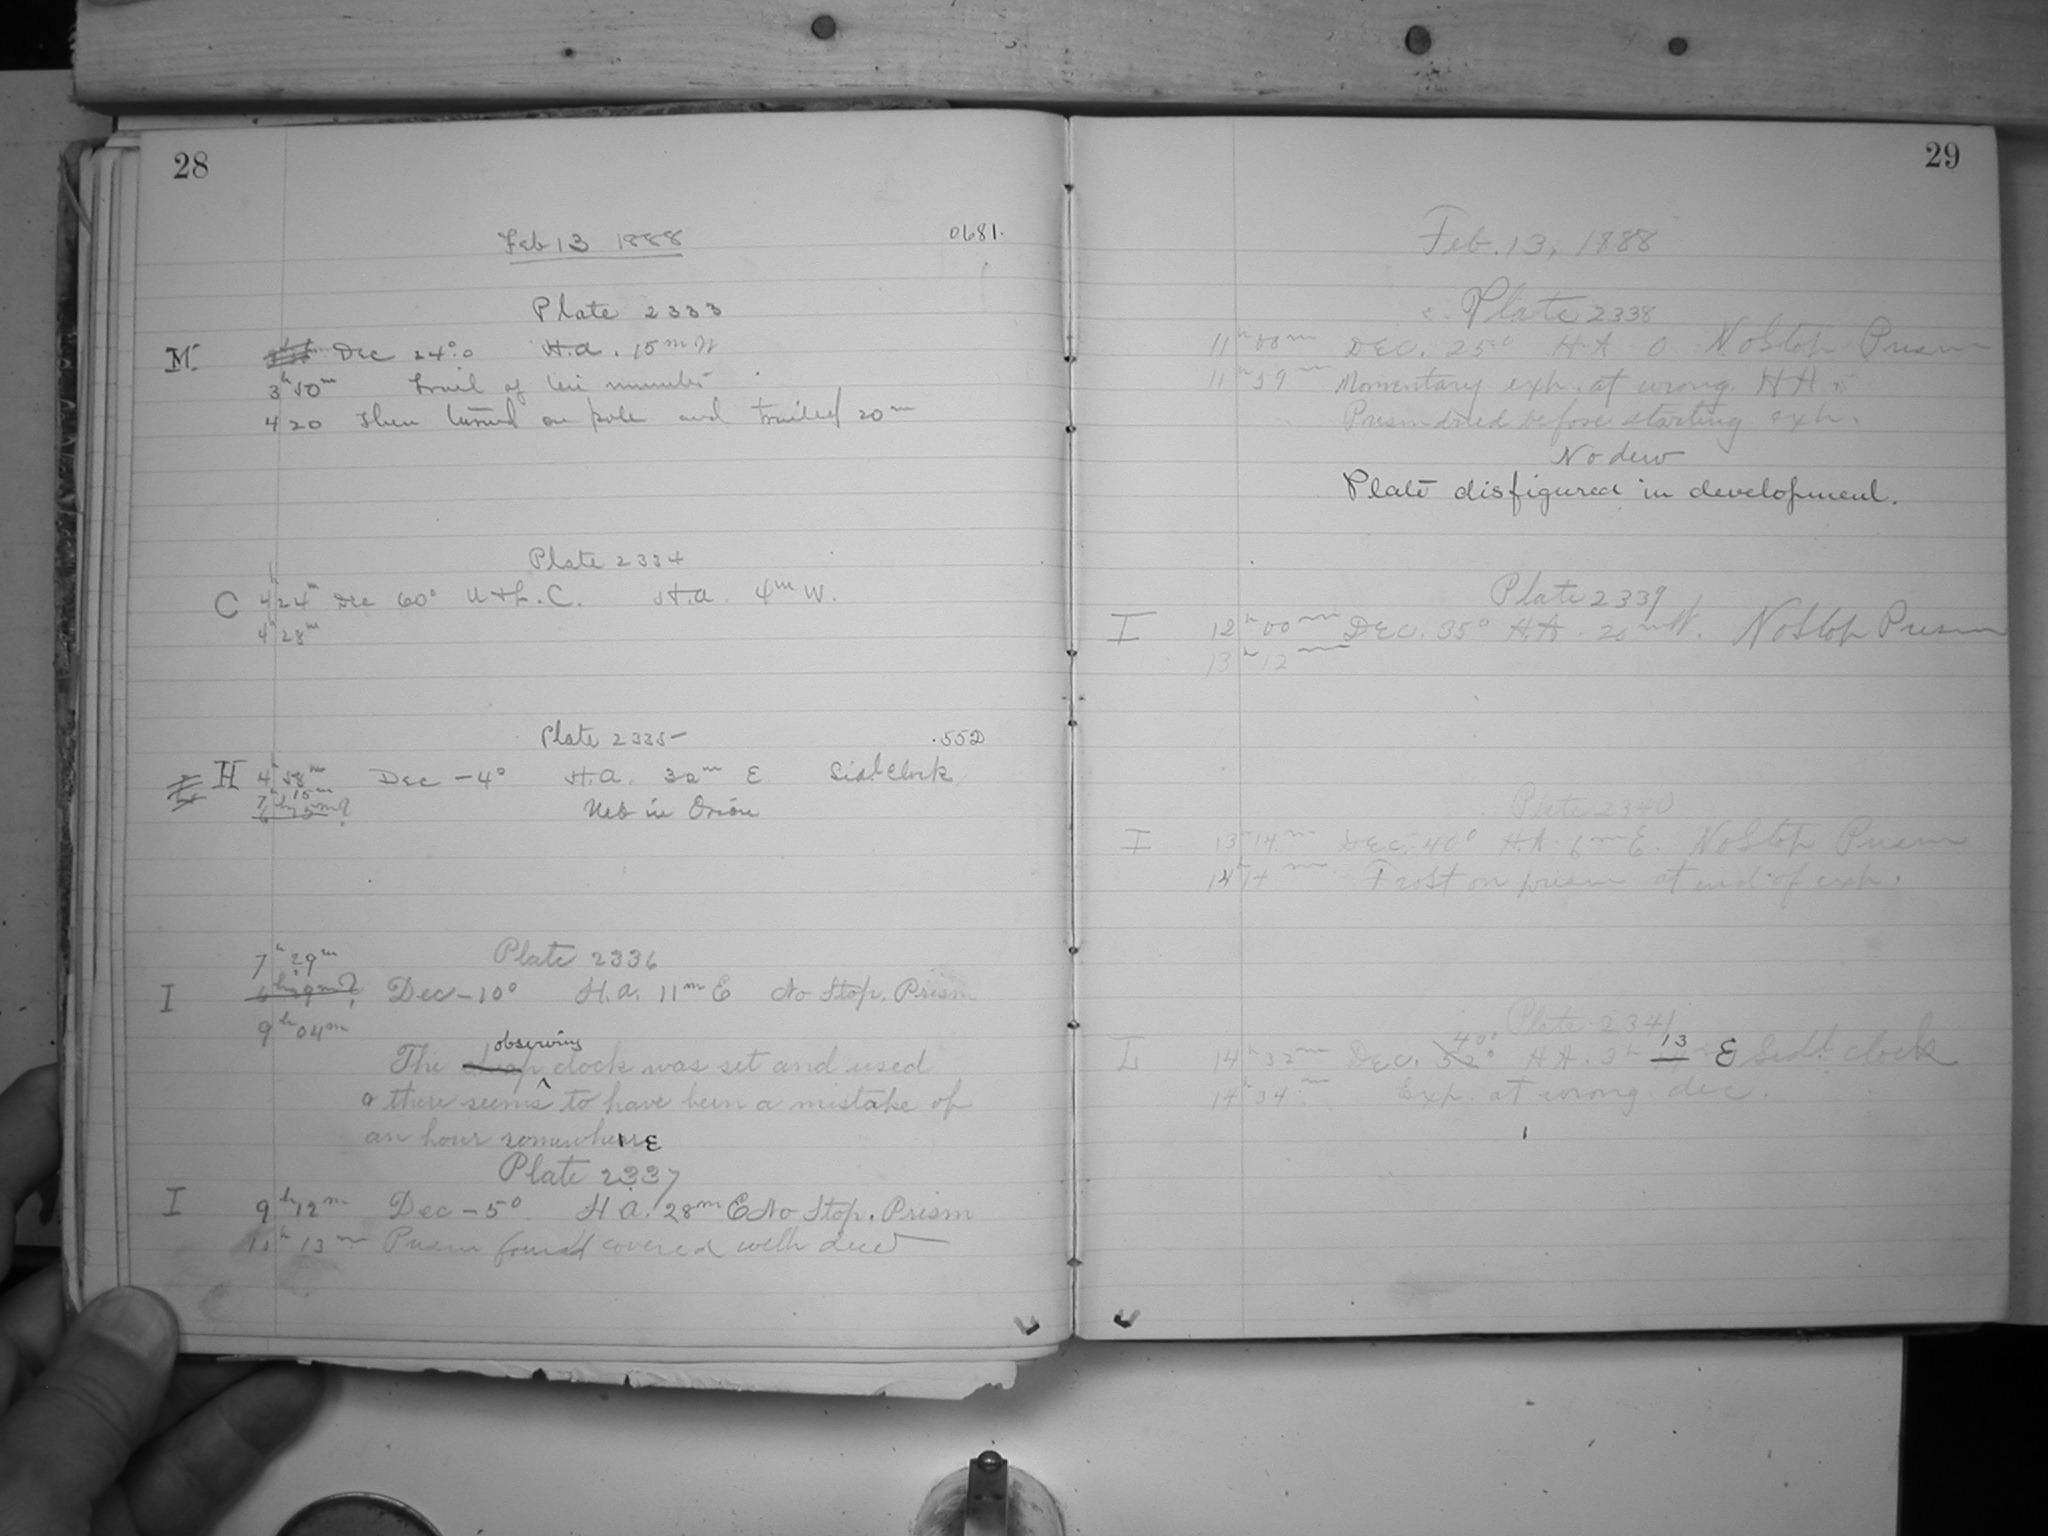 28
Feb 13 1888 0681.
Plate 2333
M. Dec 24°.0 H.a. 15m W
3h 50m Trail of
4 20 then turned on pole and trailed 20m
Plate 2334
C 4h 24m Dec 60° U+L.C. H.a. 4m W.
4h 28m
Plate 2335 .552
H 4h 58m Dec -4° H.a. 32m E Sid.l Clock
7h 15m
6h 15m? Neb in Orion
7h 29m Plate 2336
I 6h 29m? Dec -10° H.a. 11m E No Stop. Prism
9h 04m
observing
The cheap clock was set and used
& there seems to have been a mistake of
an hour somewhere
Plate 2337
I 9h 12m Dec -5° H.a. 28m E No Stop. Prism
11h 13m Prism found covered with dew
29
Feb. 13, 1888
Plate 2338
11h 00m Dec. 25° H.A 0 No Stop Prism
11h 59m Momentary exp. at wrong H A
Prism dried before starting exp.
No dew
Plate disfigured in development.
Plate 2339
I 12h 00m Dec. 35° H.A. 20m W. No Stop Prism
13h 12m
Plate 2340
I 13h 14m Dec. 40° H.A. 6m E. No Stop Prism
14h 14m Frost on prism at end of exp.
Plate 2341
40°
L 14h 32m Dec. 52° H A. 3h 13 E Sid.l clock
14h 34m Exp. at wrong dec.